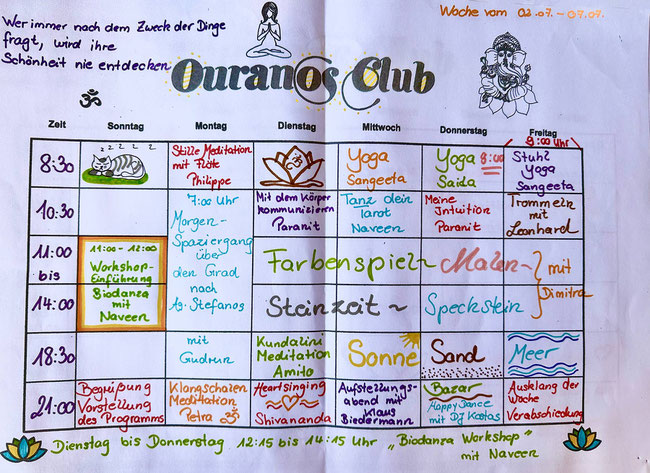 Wer immer nach dem Zweck der Dinge
fragt, wird ihre
Schönheit nie entdecken
Woche vom 02.07. - 07.07.
Ouranos Club
Zeit Sonntag Montag Dienstag Mittwoch Donnerstag Freitag
8:00 Uhr
8:30
z z z z z
Stille Meditation
mit Flöte
Philippe
Yoga
Sangeeta
Yoga 8:00
Saida
Stuhl
Yoga
Sangeeta
10:30
7:00 Uhr
Morgen-
Spaziergang
über
den Grad
nach
Ag. Stefanos
mit
Gudrun
Mit dem Körper
kommunizieren
Paranit
Tanz dein
Tarot
Naveen
Meine
Intuition
Paranit
Trommeln
mit
Leonhard
11:00
bis
14:00
11:00 - 12:00
Workshop-
Einführung
Biodanza
mit
Naveen
Farbenspiel ~ Malen ~
Steinzeit ~ Speckstein
mit
Dimitra
18:30
Kundalini
Meditation
Amito
Sonne
Sand
Meer
21:00
Begrüßung
Vorstellung
des Programms
Klangschalen
Meditation
Petra ॐ
Heartsinging
Shivananda
Aufstellungs-
abend mit
Klaus
Biedermann
Bazar
Happy Dance
mit DJ Kostas
Ausklang der
Woche
Verabschiedung
Dienstag bis Donnerstag 12:15 bis 14:15 Uhr „Biodanza Workshop"
mit Naveen